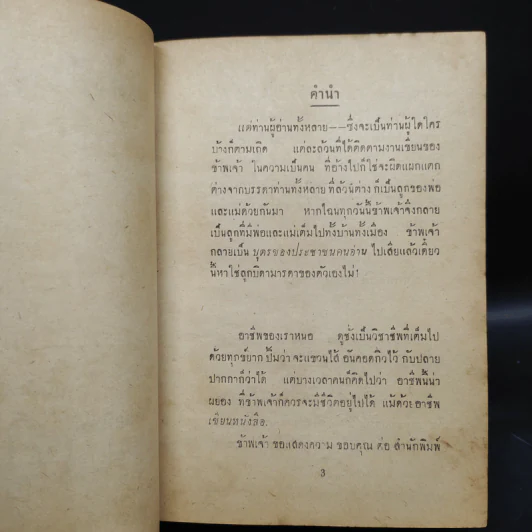 คำนำ
แด่ท่านผู้อ่านทั้งหลาย——ซึ่งจะเป็นท่านผู้ใดใคร
บ้างก็ตามเถิด แต่ละล้วนที่ได้ติดตามงานเขียนของ
ข้าพเจ้า ในความเป็นคน ที่อ้างไปก็ใช่จะผิดแผกแตก
ต่างจากบรรดาท่านทั้งหลาย ที่ล้วนต่าง ก็เป็นลูกของพ่อ
และแม่ด้วยกันมา หากไฉนทุกวันนี้ข้าพเจ้าจึงกลาย
เป็นลูกที่มีพ่อและแม่เต็มไปทั้งบ้านทั้งเมือง ข้าพเจ้า
กลายเป็น บุตรของประชาชนคนอ่าน ไปเสียแล้วเดี๋ยว
นี้หาใช่ลูกบิดามารดาของตัวเองไม่!
อาชีพของเราหนอ ดูชั่งเป็นวิชาชีพที่เต็มไป
ด้วยทุกข์ยาก ปิ้มว่า จะแขวนไส้ อันคอดกิ่วไว้ กับปลาย
ปากกาก็ว่าได้ แต่บางเวลาคนก็คิดไปว่า อาชีพนี้น่า
ผยอง ที่ข้าพเจ้าก็ควรจะมีชีวิตอยู่ไปได้ แม้ด้วยอาชีพ
เขียนหนังสือ.
ข้าพเจ้า ขอแสดงความ ขอบคุณ ต่อ สำนักพิมพ์
3